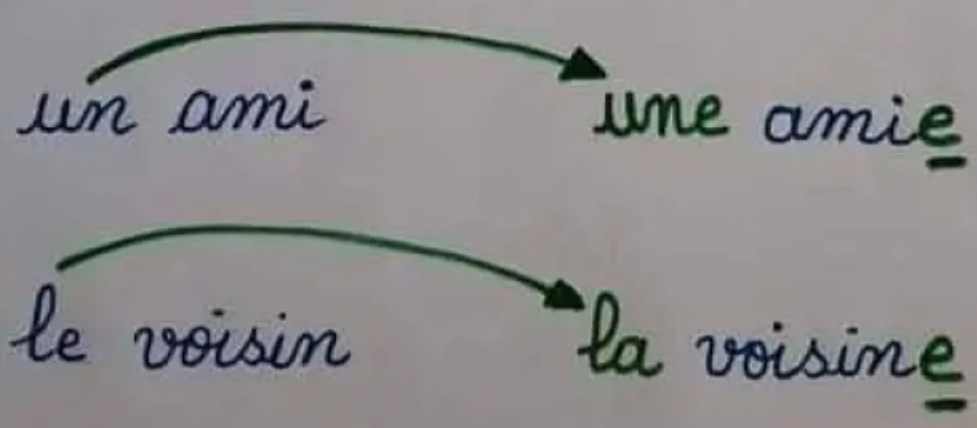 un ami une amie
le voisin la voisine